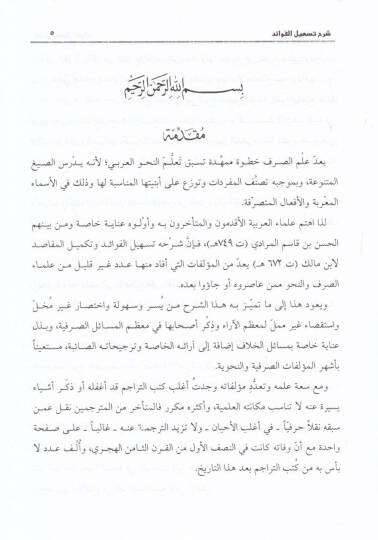 شرح تسهيل الفوائد
٥
بسم الله الرحمن الرحيم
مُقَدِّمَة
يعدّ علْم الصرف خطوة ممهّدة تسبق تعلُّمَ النحو العربي؛ لأنه يدْرس الصيغ
المتنوعة، وبموجبه تصنُف المفردات وتوزع على أبنيتها المناسبة لها وذلك في الأسماء
المعْربة والأفعال المتصرفّة.
لذا اهتم علماء العربية الأقدمون والمتأخرون به وأوْلوه عناية خاصة ومن بينهم
الحسن بن قاسم المرادي (ت ٧٤٩هـ)، فإنّ شرْحه تسهيل الفوائد وتكميل المقاصد
لابن مالك (ت ٦٧٢ هـ) يعدّ من المؤلفات التي أفاد منها عدد غير قليل من علماء
الصرف والنحو ممن عاصروه أو جاؤوا بعده.
ويعود هذا إلى ما تميّز به هذا الشرح من يُسر وسهولة واختصار غير مُخلّ
واستقصاء غير مملّ لمعظم الآراء وذِكْر أصحابها في معظم المسائل الصرفية، وبذل
عناية خاصة بمسائل الخلاف إضافة إلى آرائه الخاصة وترجيحاته الصائبة، مستعيناً
بأشهر المؤلفات الصرفية والنحوية.
ومع سعة علمه وتعدُّدِ مؤلفاته وجدتُ أغلب كتب التراجم قد أغفلته أو ذكَر أشياء
يسيرة عنه لا تناسب مكانته العلمية، وأكثره مكرر فالمتأخر من المترجمين نقل عمن
سبقه نقلاً حرفيّاً ـ في أغلب الأحيان ـ ولا تزيد الترجمة عنه ـ غالبـاً ـ على صفحة
واحدة مع أنّ وفاته كانت في النصف الأول من القرن الثامن الهجري، وأُلِّف عدد لا
بأس به من كُتب التراجم بعد هذا التاريخ.